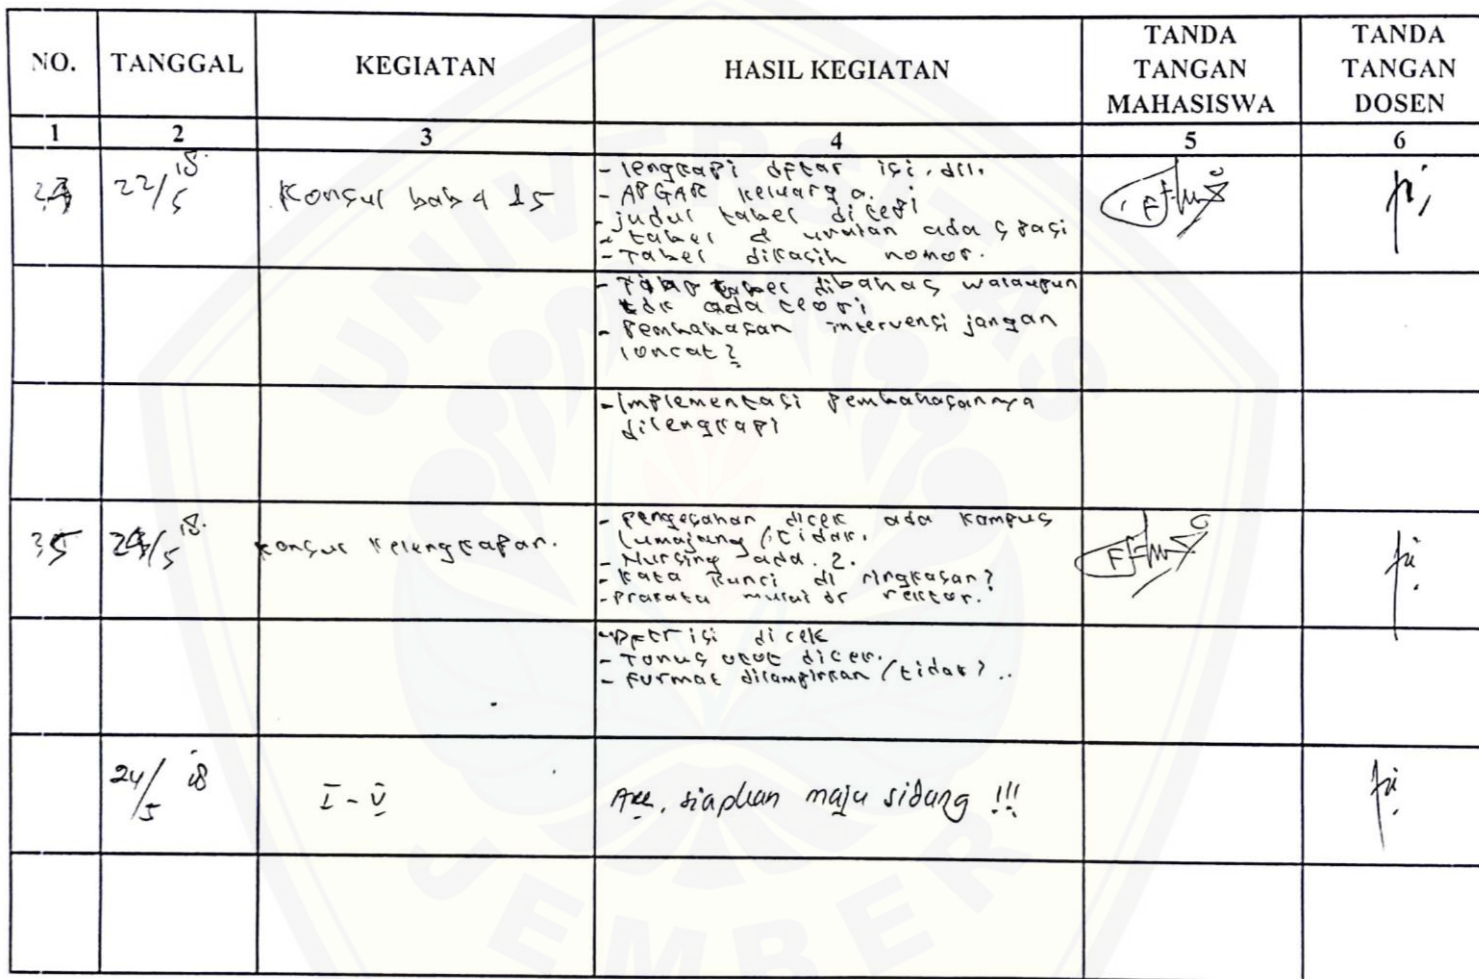 NO.
TANGGAL
KEGIATAN
HASIL KEGIATAN
TANDA TANGAN MAHASISWA
TANDA TANGAN DOSEN
1 2 3 4 5 6
22/5 18. Konsul bab 4 & 5
- lengkapi dftar isi, dll.
- APGAR keluarga.
- judul tabel diteliti
- tabel & uraian ada spasi
- Tabel dikasih nomor.
- Tiap tabel dibahas walaupun
tdk ada teori
- Pembahasan intervensi jangan
loncat?
- Implementasi pembahasannya
dilengkapi
35 24/5 18. Konsul kelengkapan.
- pengesahan dicek ada kampus
Lumajang / tidak.
- Nursing ada. 2.
- kata kunci di ringkasan?
- prakata mulai dr rektor.
- Dftr isi dicek
- Tonus otot dicek.
- Format dilampirkan / tidak? ..
24/5 18 I - V Acc, siapkan maju sidang !!!
UNIVERSITAS
JEMBER